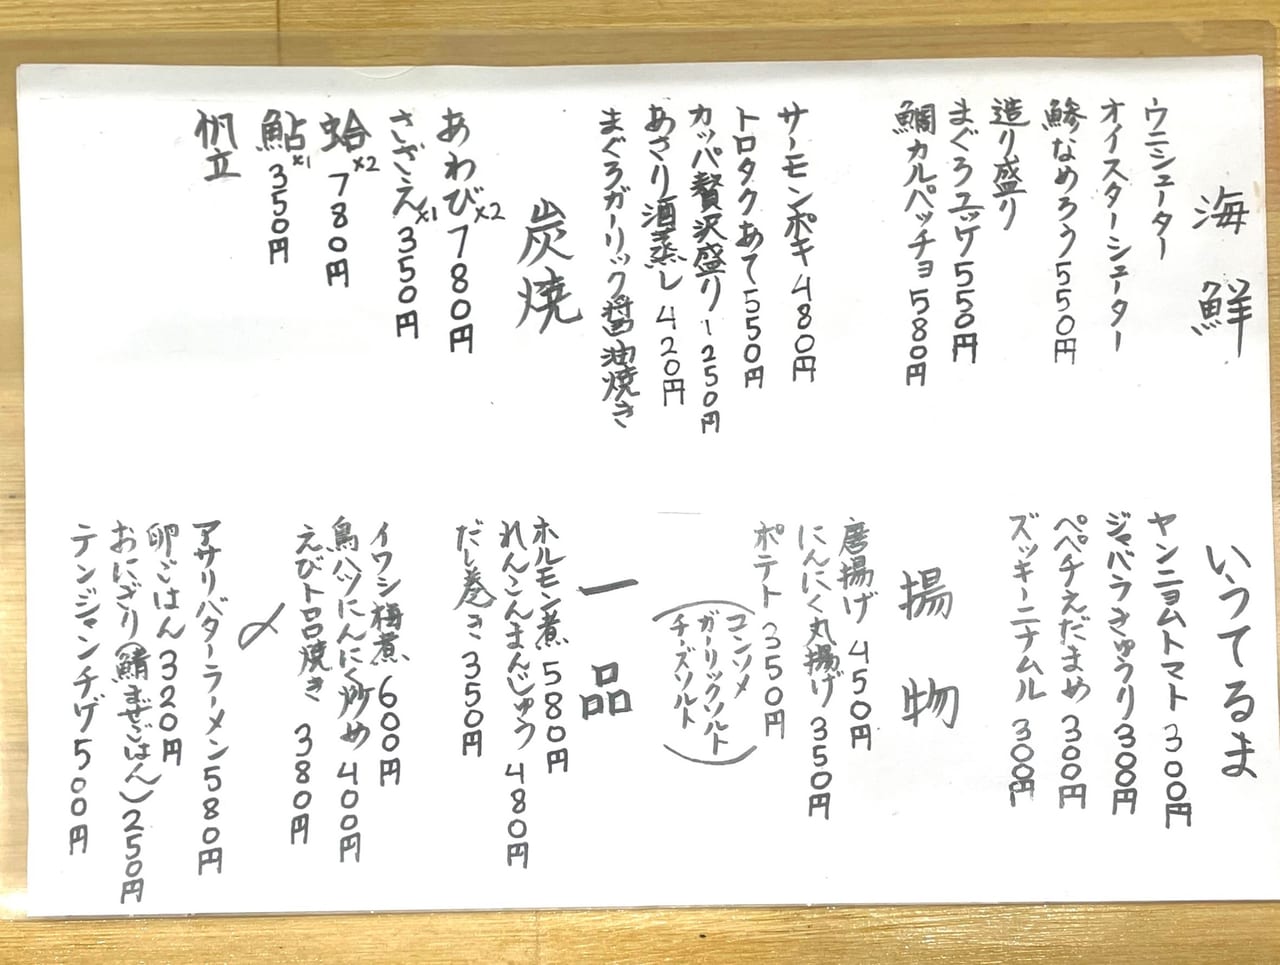 海鮮
ウニシューター
オイスターシューター
鯵なめろう550円
造り盛り
まぐろユッケ550円
鯛カルパッチョ580円
サーモンポキ480円
トロタクあて550円
カッパ贅沢盛り1250円
あさり酒蒸し420円
まぐろガーリック醤油焼き
炭焼
あわび×2 780円
さざえ×1 350円
蛤×2 780円
鮎×1 350円
帆立
いうてるま
ヤンニョムトマト300円
ジャバラきゅうり300円
ペペチえだまめ300円
ズッキーニナムル300円
揚物
唐揚げ450円
にんにく丸揚げ350円
ポテト350円
(コンソメ
ガーリックソルト
チーズソルト)
一品
ホルモン煮580円
れんこんまんじゅう480円
だし巻き350円
イワシ梅煮600円
鳥ハツにんにく炒め400円
えびトロロ焼き380円
〆
アサリバターラーメン580円
卵ごはん320円
おにぎり(鯖まぜごはん)250円
テンジャンチゲ500円